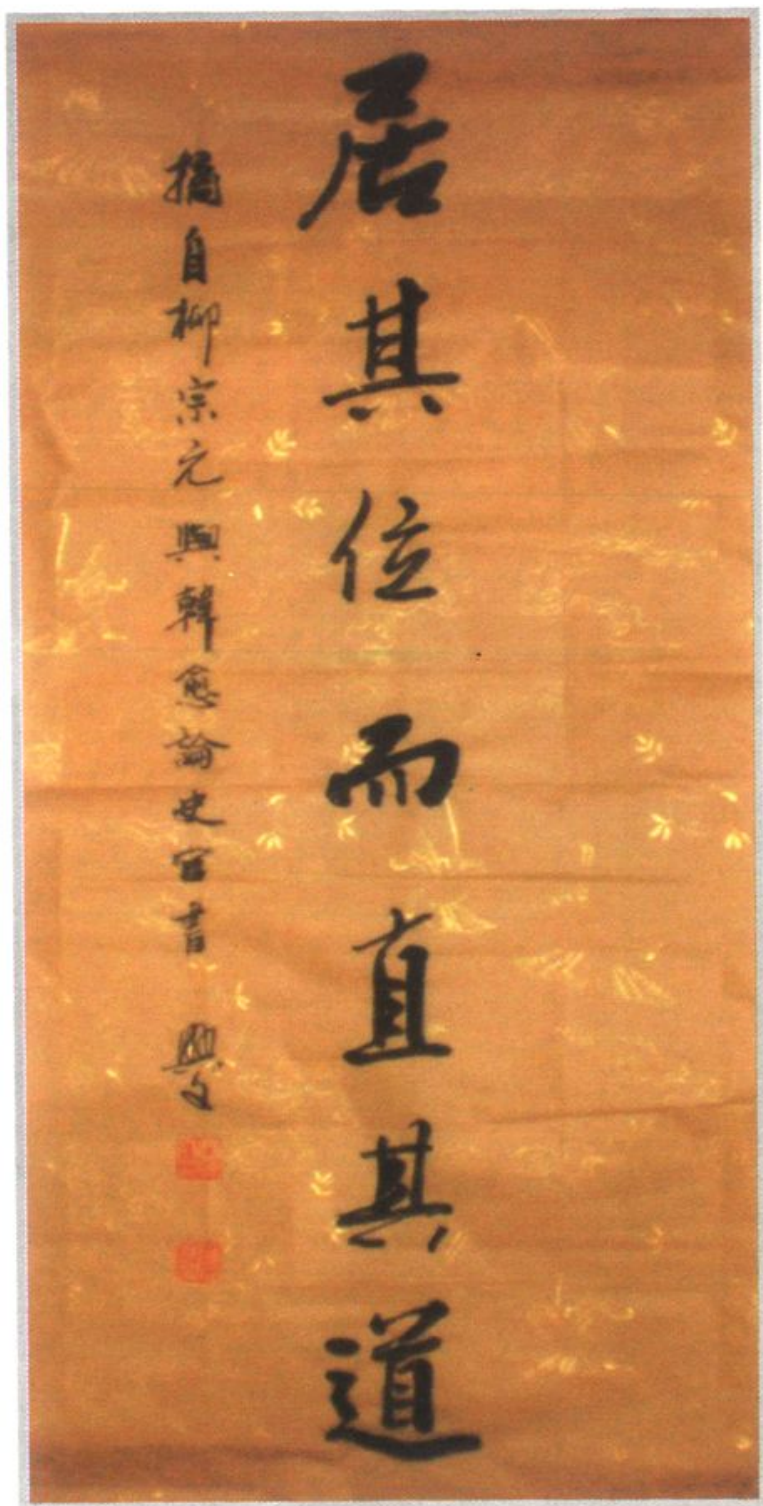 居其位而直其道
摘自柳宗元與韓愈論史官書